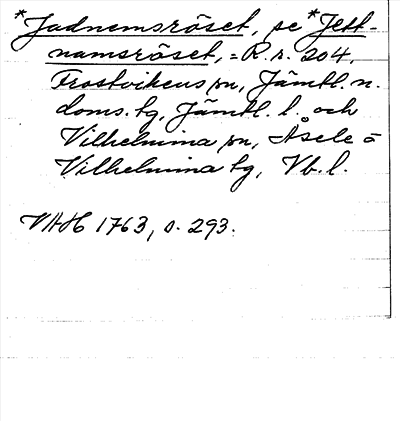 *Jadnemsröset, se *Jett-
namsröset, = R.r. 204,
Frostvikens sn, Jämtl. n.
doms. tg, Jämtl. l. och
Vilhelmina sn, Åsele o
Vilhelmina tg, Vb. l.
VAH 1763, s. 293.